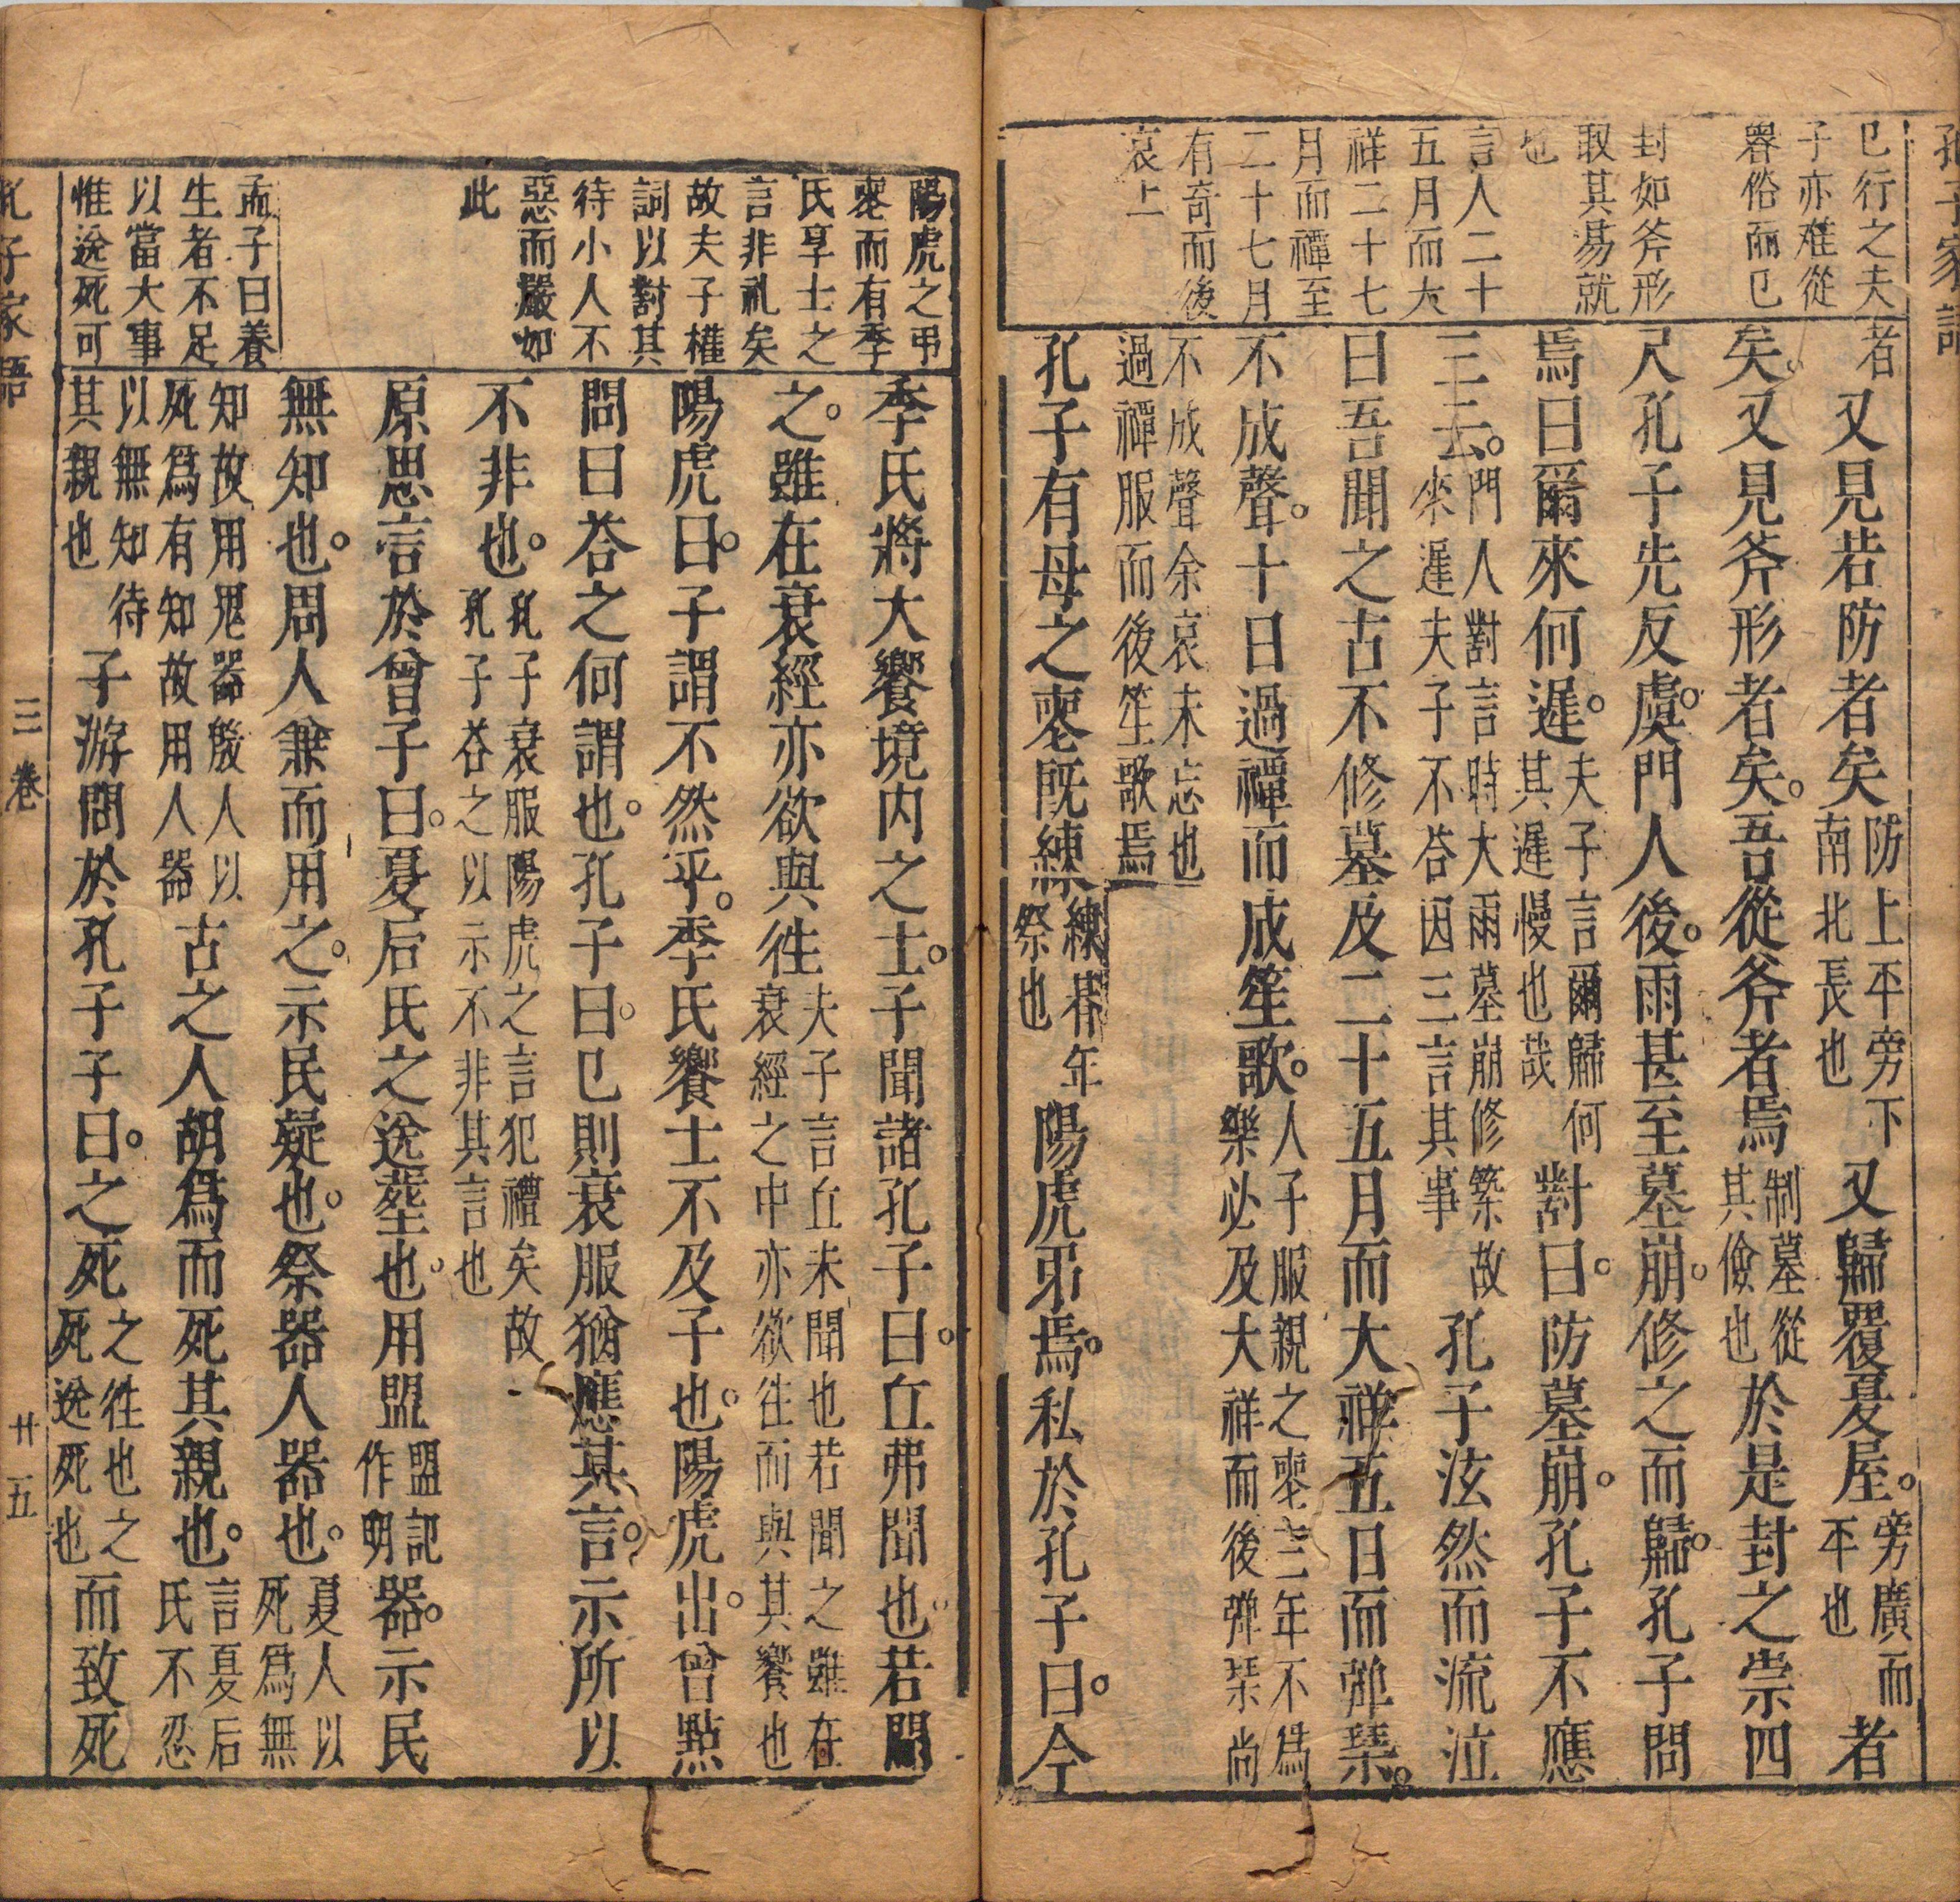 孔子家語
已行之夫
子亦难從
畧俗而已
封如斧形
取其昜就
也
言人二十
五月而大
祥二十七
月而禫至
二十七月
有奇而後
哀上
者又見若防者矣防上平旁下南北長也又歸覆夏屋旁廣而平也者
矣又見斧形者矣吾從斧者焉制墓從其儉也於是封之崇四
尺孔子先反虞門人後雨甚至墓崩修之而歸孔子問
焉曰爾來何遲夫子言爾歸何其遲慢也哉對曰防墓崩孔子不應
三云門人對言時大雨墓崩修築故來遲夫子不荅因三言其事孔子泫然而流泣
曰吾聞之古不修墓及二十五月而大祥五日而弾琹
不成聲十日過禫而成笙歌人子服親之喪三年不為樂必及大祥而後弾琹尚
不成聲余哀未忘也過禫服而後笙歌焉
孔子有母之喪既練練朞年祭也陽虎弔焉私於孔子曰今
陽虎之弔
喪而有季
氏享士之
言非礼矣
故夫子權
詞以對其
待小人不
惡而嚴如
此
孟子曰養
生者不足
以當大事
惟送死可
季氏將大饗境内之士子聞諸孔子曰丘弗聞也若聞
之雖在衰經亦欲與徃夫子言丘未聞也若聞之雖在衰經之中亦欲往而與其饗也
陽虎曰子謂不然乎季氏饗士不及子也陽虎出曾點
問曰荅之何謂也孔子曰已則衰服猶應其言示所以
不非也孔子衰服陽虎之言犯禮矣故孔子荅之以示不非其言也
原思言於曾子曰夏后氏之送塟也用盟盟記作明器示民
無知也周人兼而用之示民疑也祭器人器也夏人以死爲無
知故用鬼器殷人以死爲有知故用人器古之人胡爲而死其親也言夏后氏不忍
以無知待其親也子游問於孔子子曰之死之徃也之死送死也而致死
孔子家語
三卷
廿五